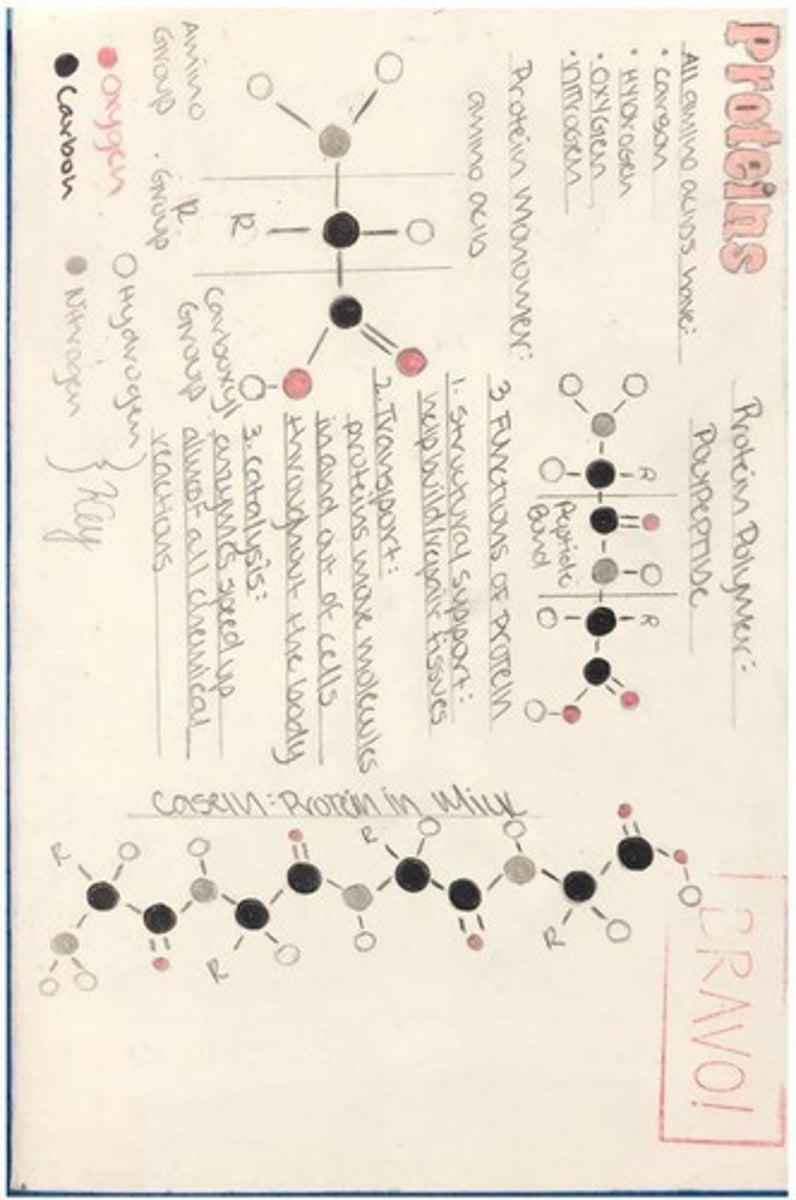 Proteins
All amino acids have:
• Carbon
• Hydrogen
• Oxygen
• Nitrogen
Protein Monomer:
amino acid
Amino
Group
R
Group
Carboxyl
Group
R
Oxygen
Carbon
Hydrogen
Nitrogen
Key
Protein Polymer:
Polypeptide
R
R
Peptide
Bond
3 Functions of Protein
1. Structural support:
help build/repair tissues
2. Transport:
proteins move molecules
in and out of cells
throughout the body
3. catalysis:
enzymes speed up
almost all chemical
reactions
Casein: Protein in Milk
R
R
R
R
BRAVO!